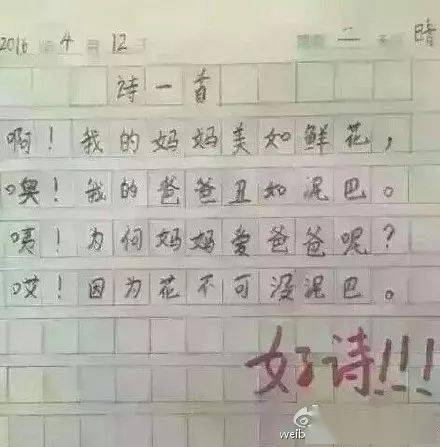 2016 年 4 月 12 日 星期 二 天气 晴
诗一首
啊！我的妈妈美如鲜花，
噢！我的爸爸丑如泥巴。
咦！为何妈妈爱爸爸呢？
哎！因为花不可没泥巴。
好诗!!!
weib